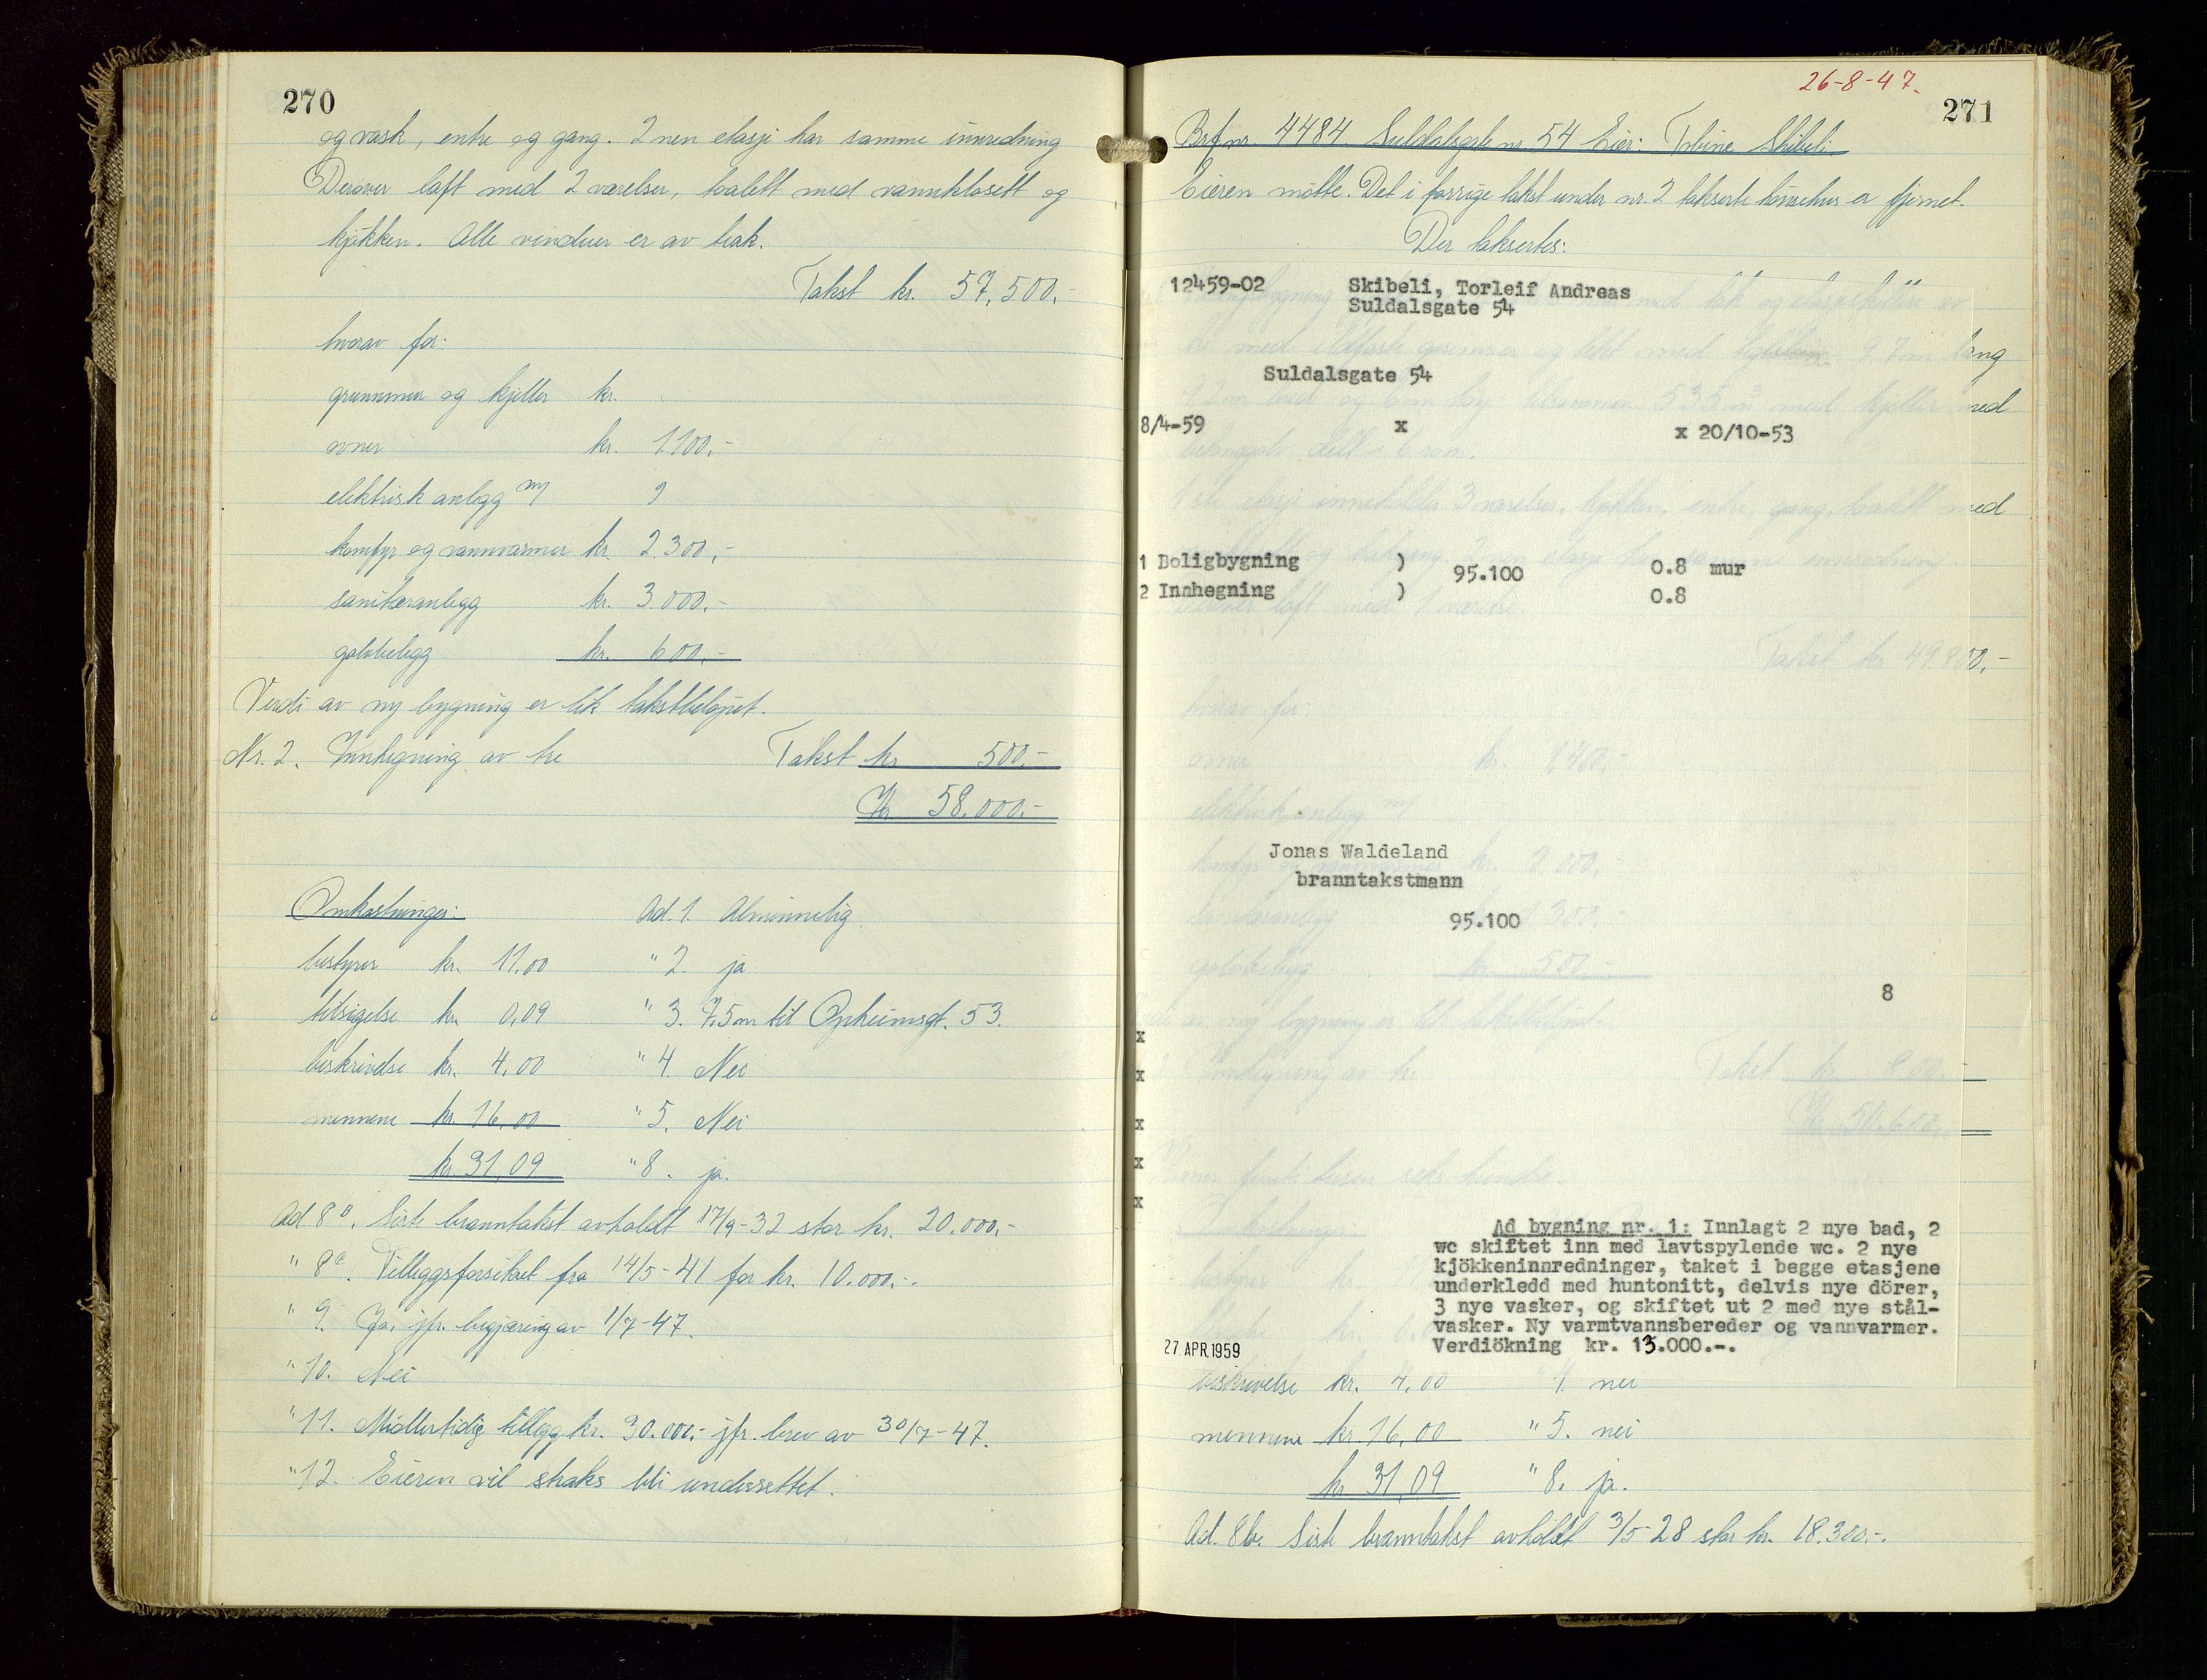 270
og vask, entre og gang. 2nen etasje har samme innredning
Derover loft med 2 værelser, toalett med vannklosett og
kjøkken. Alle vinduer er av teak.
Takst kr. 57,500,-
hvorav for:
grunnmur og kjeller kr.
ovner kr. 1100,-
elektrisk anlegg m/
komfyr og vannvarmer kr. 2300,-
sanitæranlegg kr. 3.000.-
golvbelegg kr. 600,-
Verdi av ny bygning er lik takstbeløpet.
Nr. 2. Innhegning av tre Takst kr 500.-
Kr 58.000.-
Omkostninger: Ad. 1. Alminnelig
bestyrer kr. 11.00 " 2. ja
tilsigelse kr 0,09 " 3. 7,5 m til Opheimsgt. 53.
beskrivelse kr. 4,00 " 4. Nei
mennene kr. 16,00 " 5. Nei
kr 31,09 " 8. ja.
Ad 8b. Siste branntakst avholdt 17/9-32 stor kr. 20.000,-
" 8c. Tilleggsforsikret fra 14/5-41 for kr. 10.000.-
" 9. Ja, jfr. begjæring av 1/7-47.
" 10. Nei
" 11. Midlertidig tillegg kr. 30.000.- jfr. brev av 30/7-47.
" 12. Eieren vil straks bli underrettet.
26-8-47.
271
Brf nr. 4484. Suldalsgate nr 54 Eier: Tobine Skibeli
Eieren møtte. Det i forrige takst under nr. 2 takserte hønsehus er fjernet.
Der taksertes:
12459-02 Skibeli, Torleif Andreas
Suldalsgate 54
Suldalsgate 54
8/4-59 x x 20/10-53
1 Boligbygning ) 95.100 0.8 mur
2 Innhegning ) 0.8
Jonas Waldeland
branntakstmann
95.100
8
x
x
x
x
x
Ad bygning nr. 1: Innlagt 2 nye bad, 2
wc skiftet inn med lavtspylende wc. 2 nye
kjökkeninnredninger, taket i begge etasjene
underkledd med huntonitt, delvis nye dörer,
3 nye vasker, og skiftet ut 2 med nye stål-
vasker. Ny varmtvannsbereder og vannvarmer.
Verdiökning kr. 13.000.-.
27. APR. 1959
beskrivelse kr. 4,00 4. nei
mennene kr 16,00 " 5. nei
kr 31,09 " 8. ja.
Ad. 8b. Siste branntakst avholdt 3/5-28 stor kr. 18.300.-.